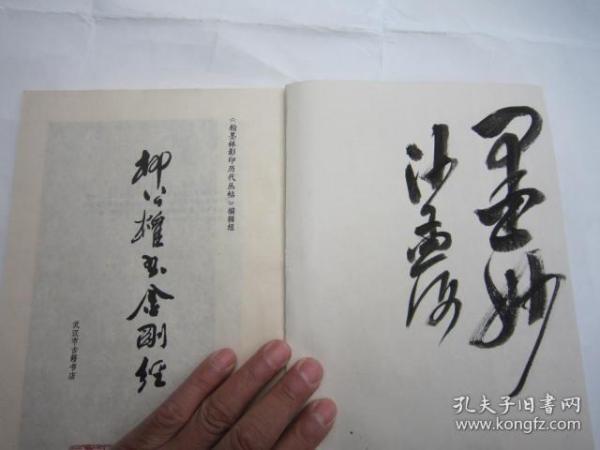 墨妙
沙孟海
《翰墨林影印历代丛帖》编辑组
柳公权书金刚经
武汉市古籍书店
孔夫子旧书网
www.kongfz.com